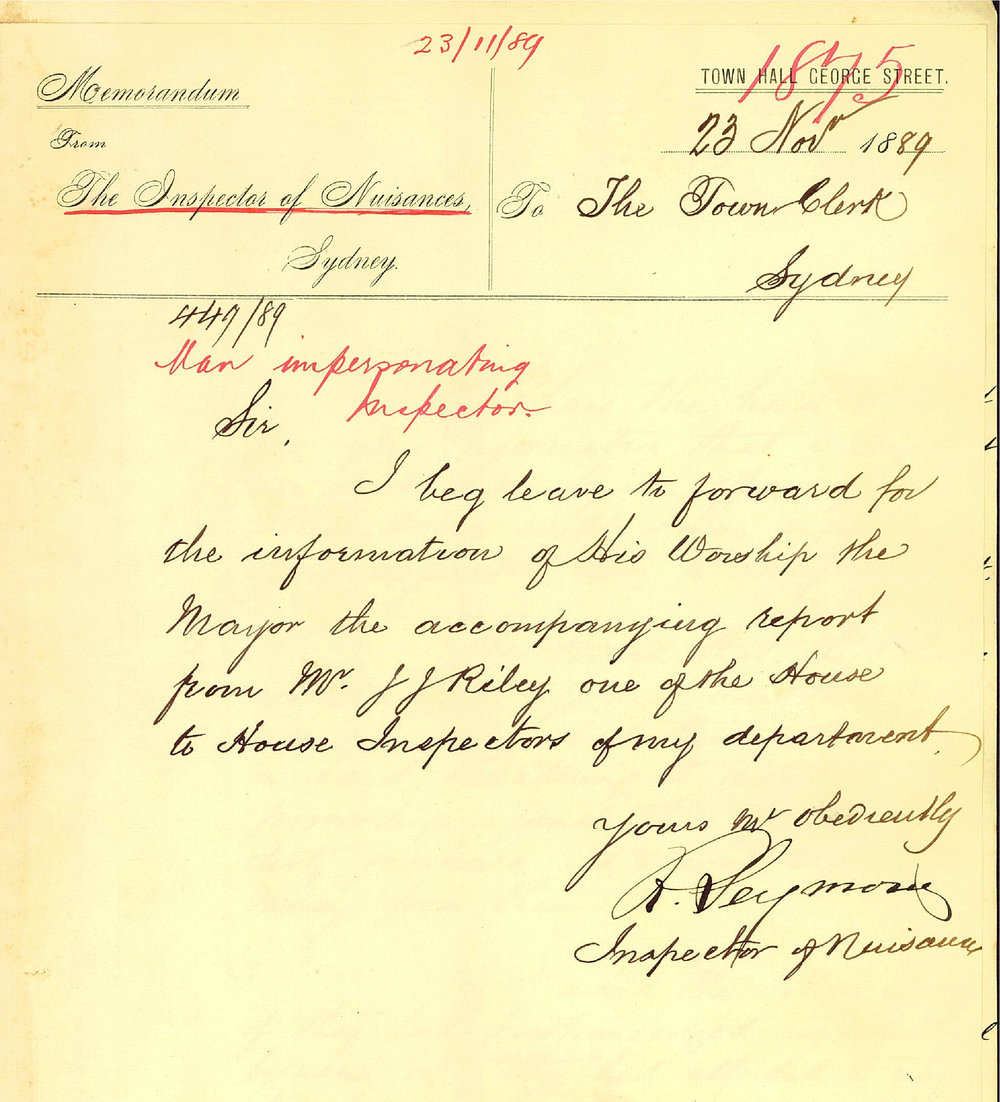 23/11/89
1875
TOWN HALL GEORGE STREET.
Memorandum
23 Novr 1889
From
The Inspector of Nuisances,
To The Town Clerk
Sydney.
Sydney
449/89
Man impersonating
Inspector.
Sir,
I beg leave to forward for
the information of His Worship the
Mayor the accompanying report
from Mr. J J Riley one of the House
to House Inspectors of my department.
Yours Mt obediently
R. Seymour
Inspector of Nuisances